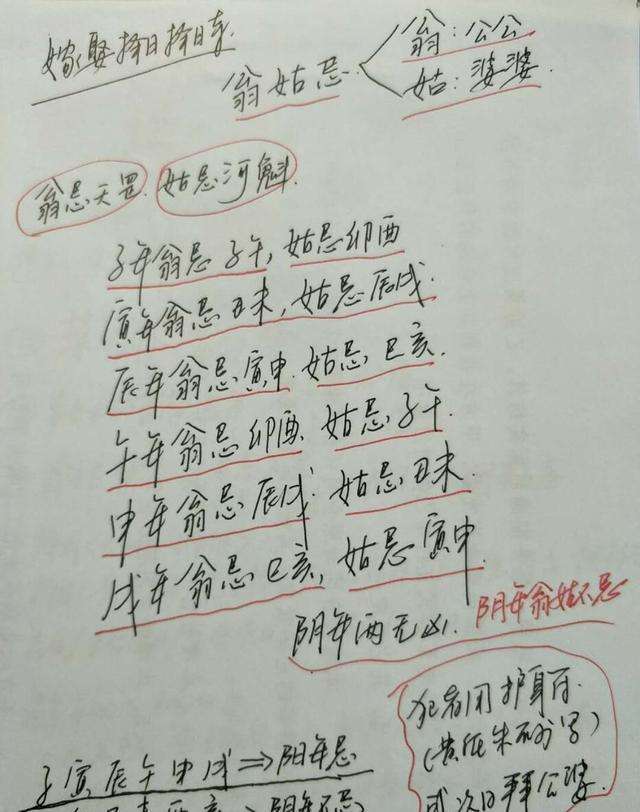 嫁娶择日择日课
翁姑忌
翁:公公
姑:婆婆
翁忌天罡 姑忌河魁
子年翁忌子午,姑忌卯酉
寅年翁忌丑未,姑忌辰戌
辰年翁忌寅申 姑忌巳亥
午年翁忌卯酉 姑忌子午
申年翁忌辰戌 姑忌丑未
戌年翁忌巳亥,姑忌寅申
阴年两无凶 阴年翁姑不忌
犯者用护身符
(黄纸朱砂写)
或次日拜公婆
子寅辰午申戌⇒阳年忌
阴年不忌